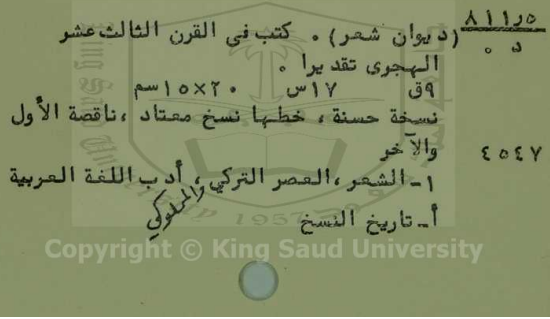 ٨١١ر٥
د ٠
(ديوان شعر) ٠ كتب فى القرن الثالث عشر
الهجرى تقديرا ٠
٩ق ١٧س ٢٠×١٥سم
نسخة حسنة ، خطها نسخ معتاد ،ناقصة الأول
والآخر
٤٥٤٧
١- الشعر ،العصر التركي والمملوكي ، أدب اللغة العربية
أ- تاريخ النسخ
1957
Copyright © King Saud University